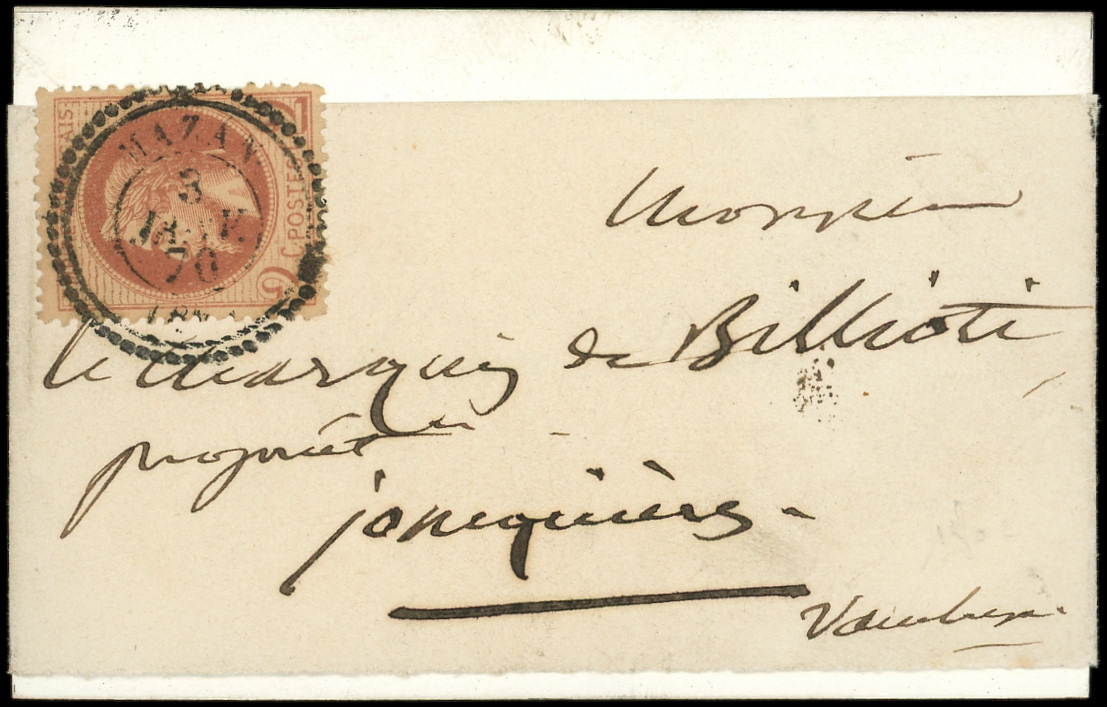 MAZAN
3
JANV.
70
2 C. POSTES
Monsieur
le Marquis de Billioti
propriét re
jonquières
Vaucluse